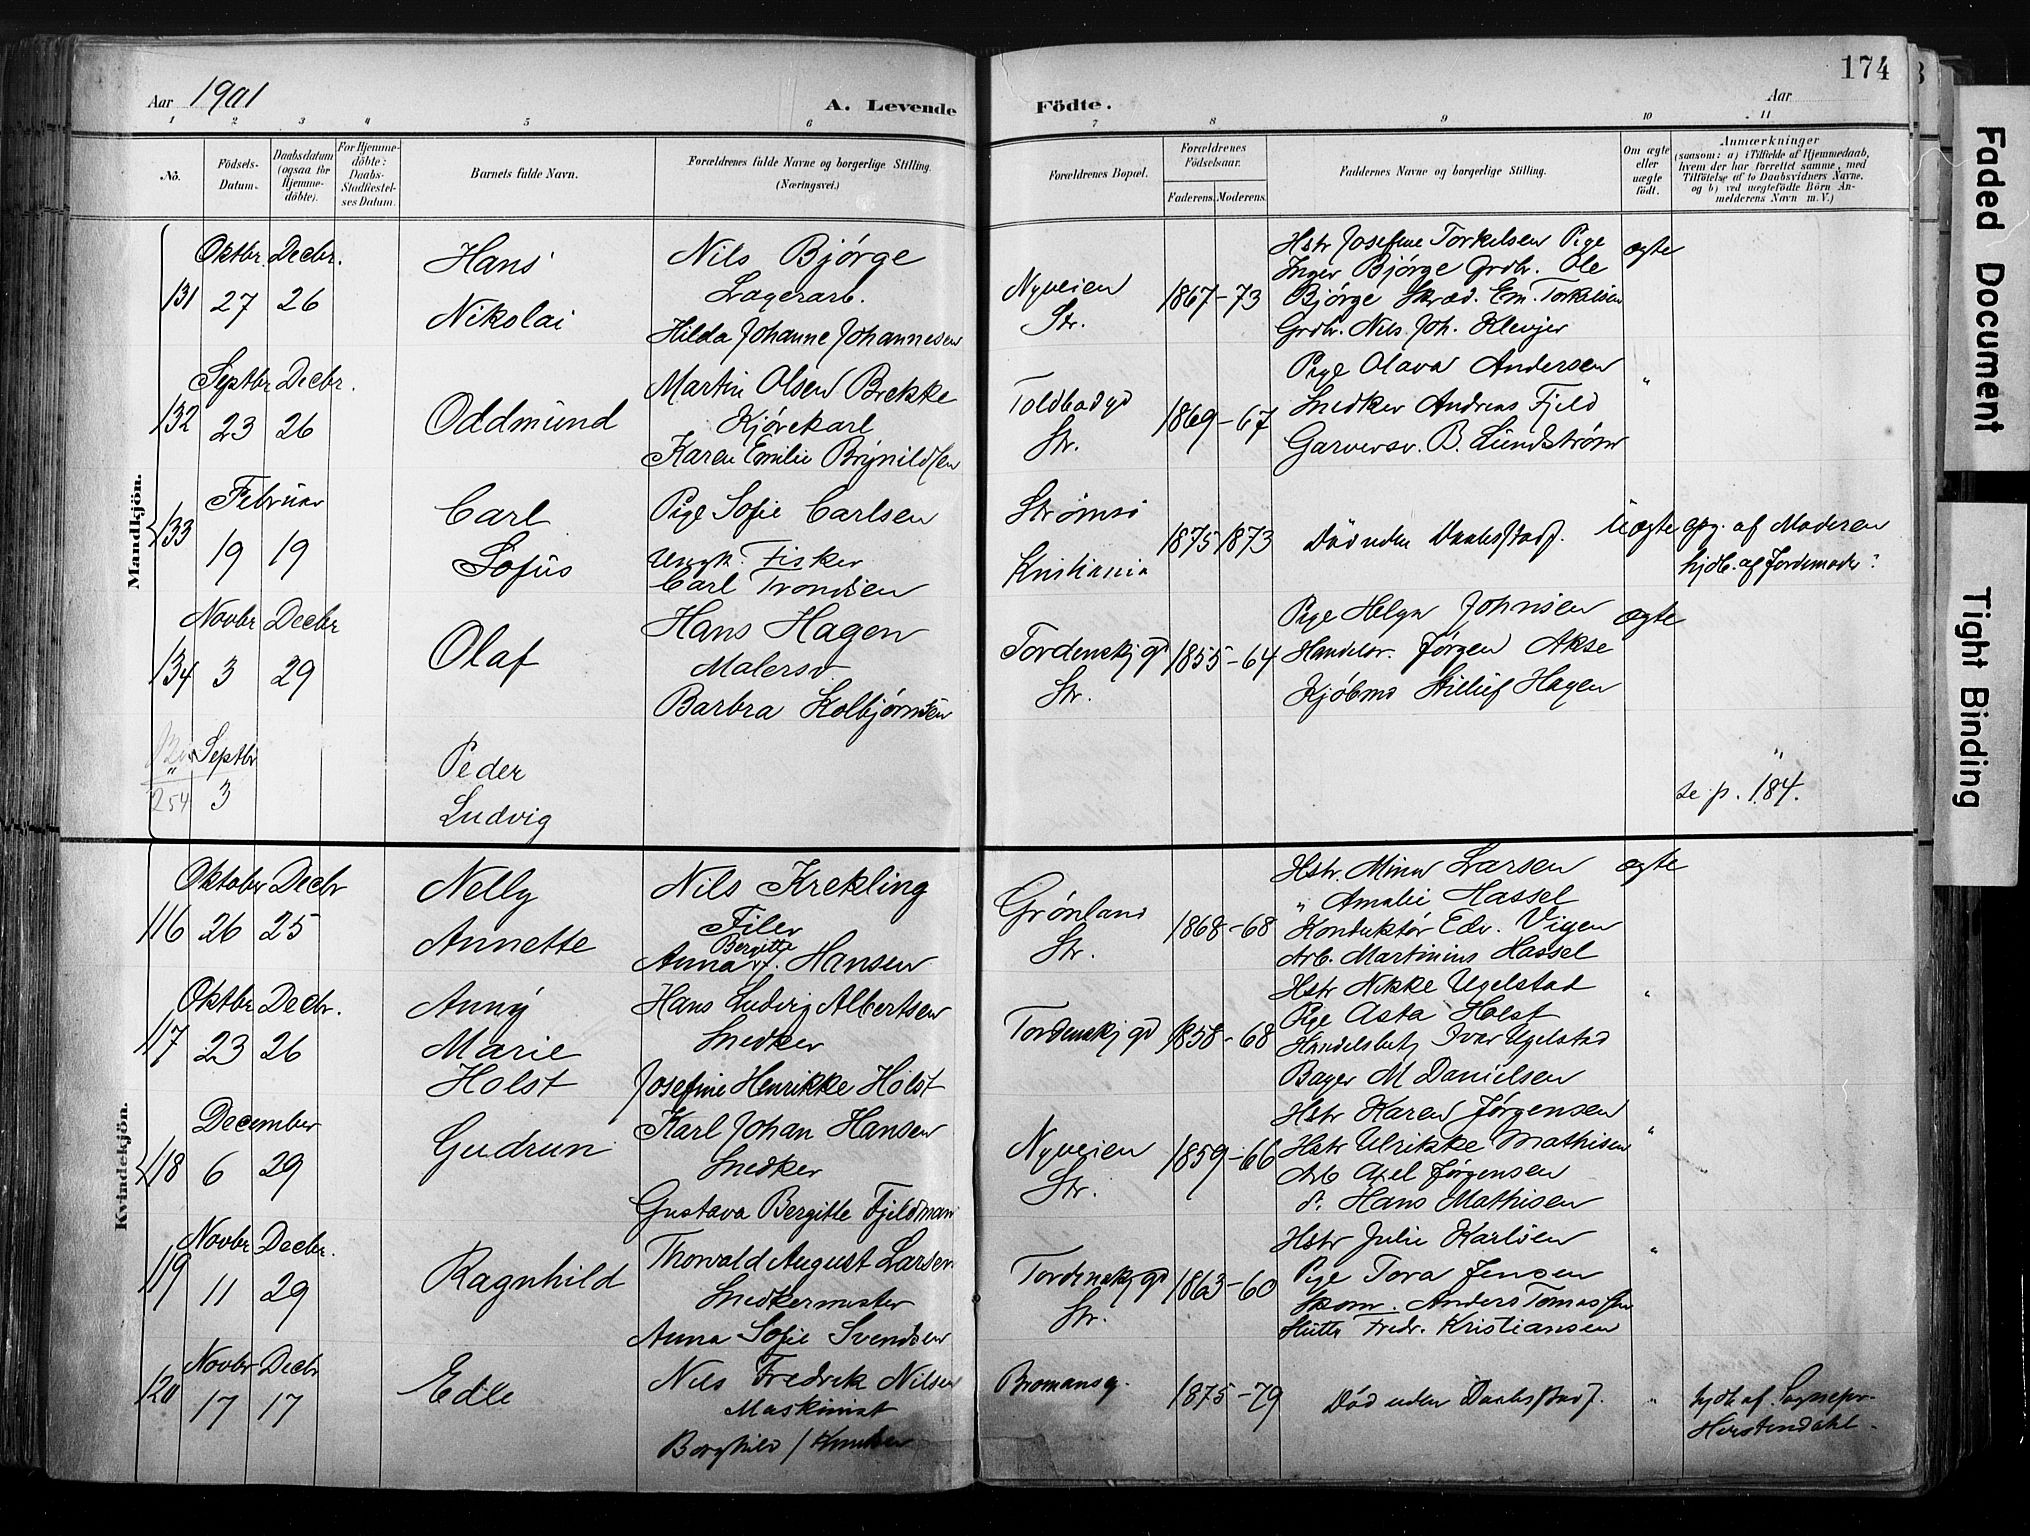 174
Aar 1901
A. Levende Födte.
Aar
1 2 3 4 5 6 7 8 9 10 11
No.
Födsels-Datum.
Daabsdatum (ogsaa for Hjemme-döbte).
For Hjemme-döbte: Daabs-Stadfæstel-ses Datum.
Barnets fulde Navn.
Forældrenes fulde Navne og borgerlige Stilling. (Næringsvei.)
Forældrenes Bopæl.
Forældrenes Födselsaar.
Faderens. Moderens.
Faddernes Navne og borgerlige Stilling.
Om ægte eller uægte födt.
Anmærkninger
(saasom: a) i Tilfælde af Hjemmedaab, hvem der har forrettet samme, med Tilföielse af to Daabsvidners Navne, og b) ved uægtefödte Börn An-melderens Navn m. V.)
Mandkjön.
131 Oktbr. 27 Decbr. 26
Hans
Nikolai
Nils Bjørge
Lagerarb.
Hilda Johanne Johannesen
Nyveien
Str.
1867-73
Hstr Josefine Torkelsen Pige
Inger Bjørge Grdbr. Ole
Bjørge Skræd. Em. Torkelsen
Grdbr. Nils Joh. Klevjer
ægte
132 Septbr 23 Decbr. 26
Oddmund
Martin Olsen Brekke
Kjørekarl
Karen Emilie Brynildsen
Toldbodgd
Str.
1869-67
Pige Olava Andersen
Snedker Andreas Fjeld
Garversv. B. Lundstrøm
"
133 Februar 19 19
Carl
Sofus
Pige Sofie Carlsen
Ungk. Fisker
Carl Trondsen
Strømsø
Kristiania
1875 1873
Død uden Daabsstadf.
Uægte
opg. af Moderen
hjdb. af Jordemoder
134 Novbr 3 Decbr 29
Olaf
Hans Hagen
Malersv.
Barbra Kolbjørnsen
Tordenskj gd
Str.
1855-64
Pige Helga Johnsen
Handelsr. Jørgen Akse
Kjøbmd Hagen
ægte
" Septbr 3
254
Peder
Ludvig
"
se p. 184.
Kvindekjön.
116 Oktober 26 Decbr 25
Nelly
Annette
Nils Krekling
Filer
Anna Bergitte f. Hansen
Grønland
Str.
1868-68
Hstr. Mina Larsen
" Amalie Hassel
Konduktør Edv. Vigen
Arb. Martinius Hassel
ægte
117 Oktbr 23 Decbr. 26
Anny
Marie
Holst
Hans Ludvig Albertsen
Snedker
Josefine Henrikke Holst
Tordenskj gd
1858-68
Hstr Nikke Ugelstad
Pige Asta Holst
Handelsbetj Ivar Ugelstad
Bager M Danielsen
"
118 December 6 29
Gudrun
Karl Johan Hansen
Snedker
Gustava Bergitte Fjeldmann
Nyveien
Str.
1859-66
Hstr Karen Jørgensen
Hstr Ulrikke Mathisen
Arb Axel Jørgensen
d. Hans Mathisen
"
119 Novbr 11 Decbr. 29
Ragnhild
Thorvald August Larsen
Snedkermester
Anna Sofie Svendsen
Tordenskj gd
Str.
1863-60
Hstr Julie Karlsen
Pige Tora Jensen
Skom. Anders Tomassen
Fredr. Kristiansen
"
120 Novbr 17 Decbr 17
Edle
Nils Fredrik Nilsen
Maskinist
Borghild Knudsen
Bromansg.
1875-79
Død uden Daabsstadf.
"
hjdb. af Sognepr.
Horstendahl.
Faded Document
Tight Binding